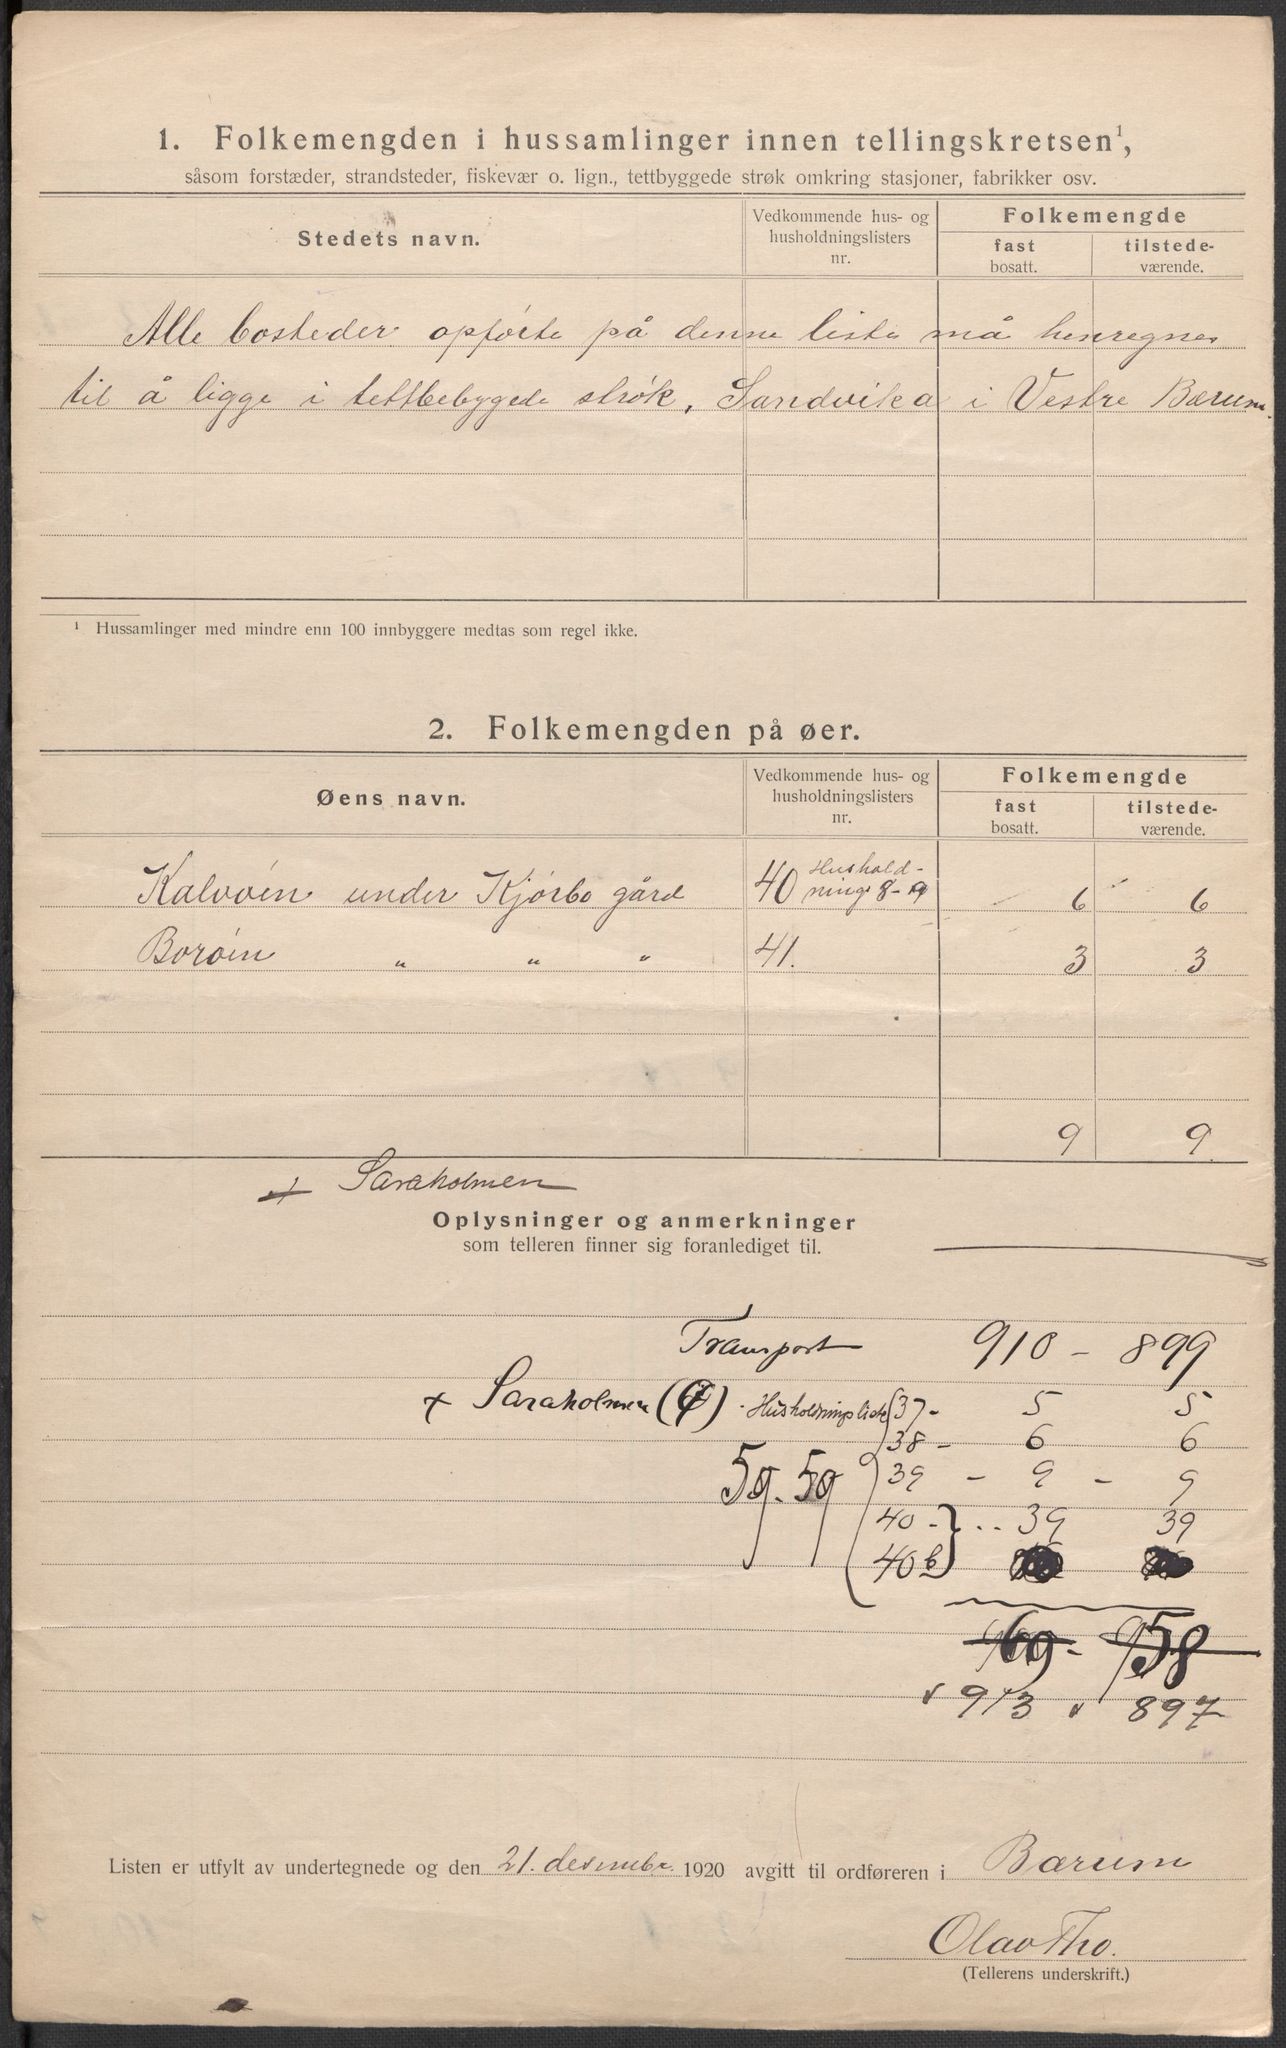 1. Folkemengden i hussamlinger innen tellingskretsen¹,
såsom forstæder, strandsteder, fiskevær o. lign., tettbyggede strøk omkring stasjoner, fabrikker osv.
Stedets navn. Vedkommende hus- og husholdningslisters nr. Folkemengde
fast bosatt. tilstede- værende.
Alle bosteder opførte på denne liste må henregnes
til å ligge i tettbebyggede strøk, Sandvika i Vestre Bærum.
¹ Hussamlinger med mindre enn 100 innbyggere medtas som regel ikke.
2. Folkemengden på øer.
Øens navn. Vedkommende hus- og husholdningslisters nr. Folkemengde
fast bosatt. tilstede- værende.
Kalvøin under Kjørbo gård 40 Hushold- ning 8-9 6 6
Borøin " " " 41. 3 3
9 9.
+ Saraholmen
Oplysninger og anmerkninger
som telleren finner sig foranlediget til.
Transport 910 - 899
+ Saraholmen Husholdningsliste 37 - 5 5
38 - 6 6
59. 59 39 - 9 - 9
40 - 39 39
40 b
969 - 958
v 913 v 897
Listen er utfylt av undertegnede og den 21. desember 1920 avgitt til ordføreren i Bærum
Olav Tho.
(Tellerens underskrift.)